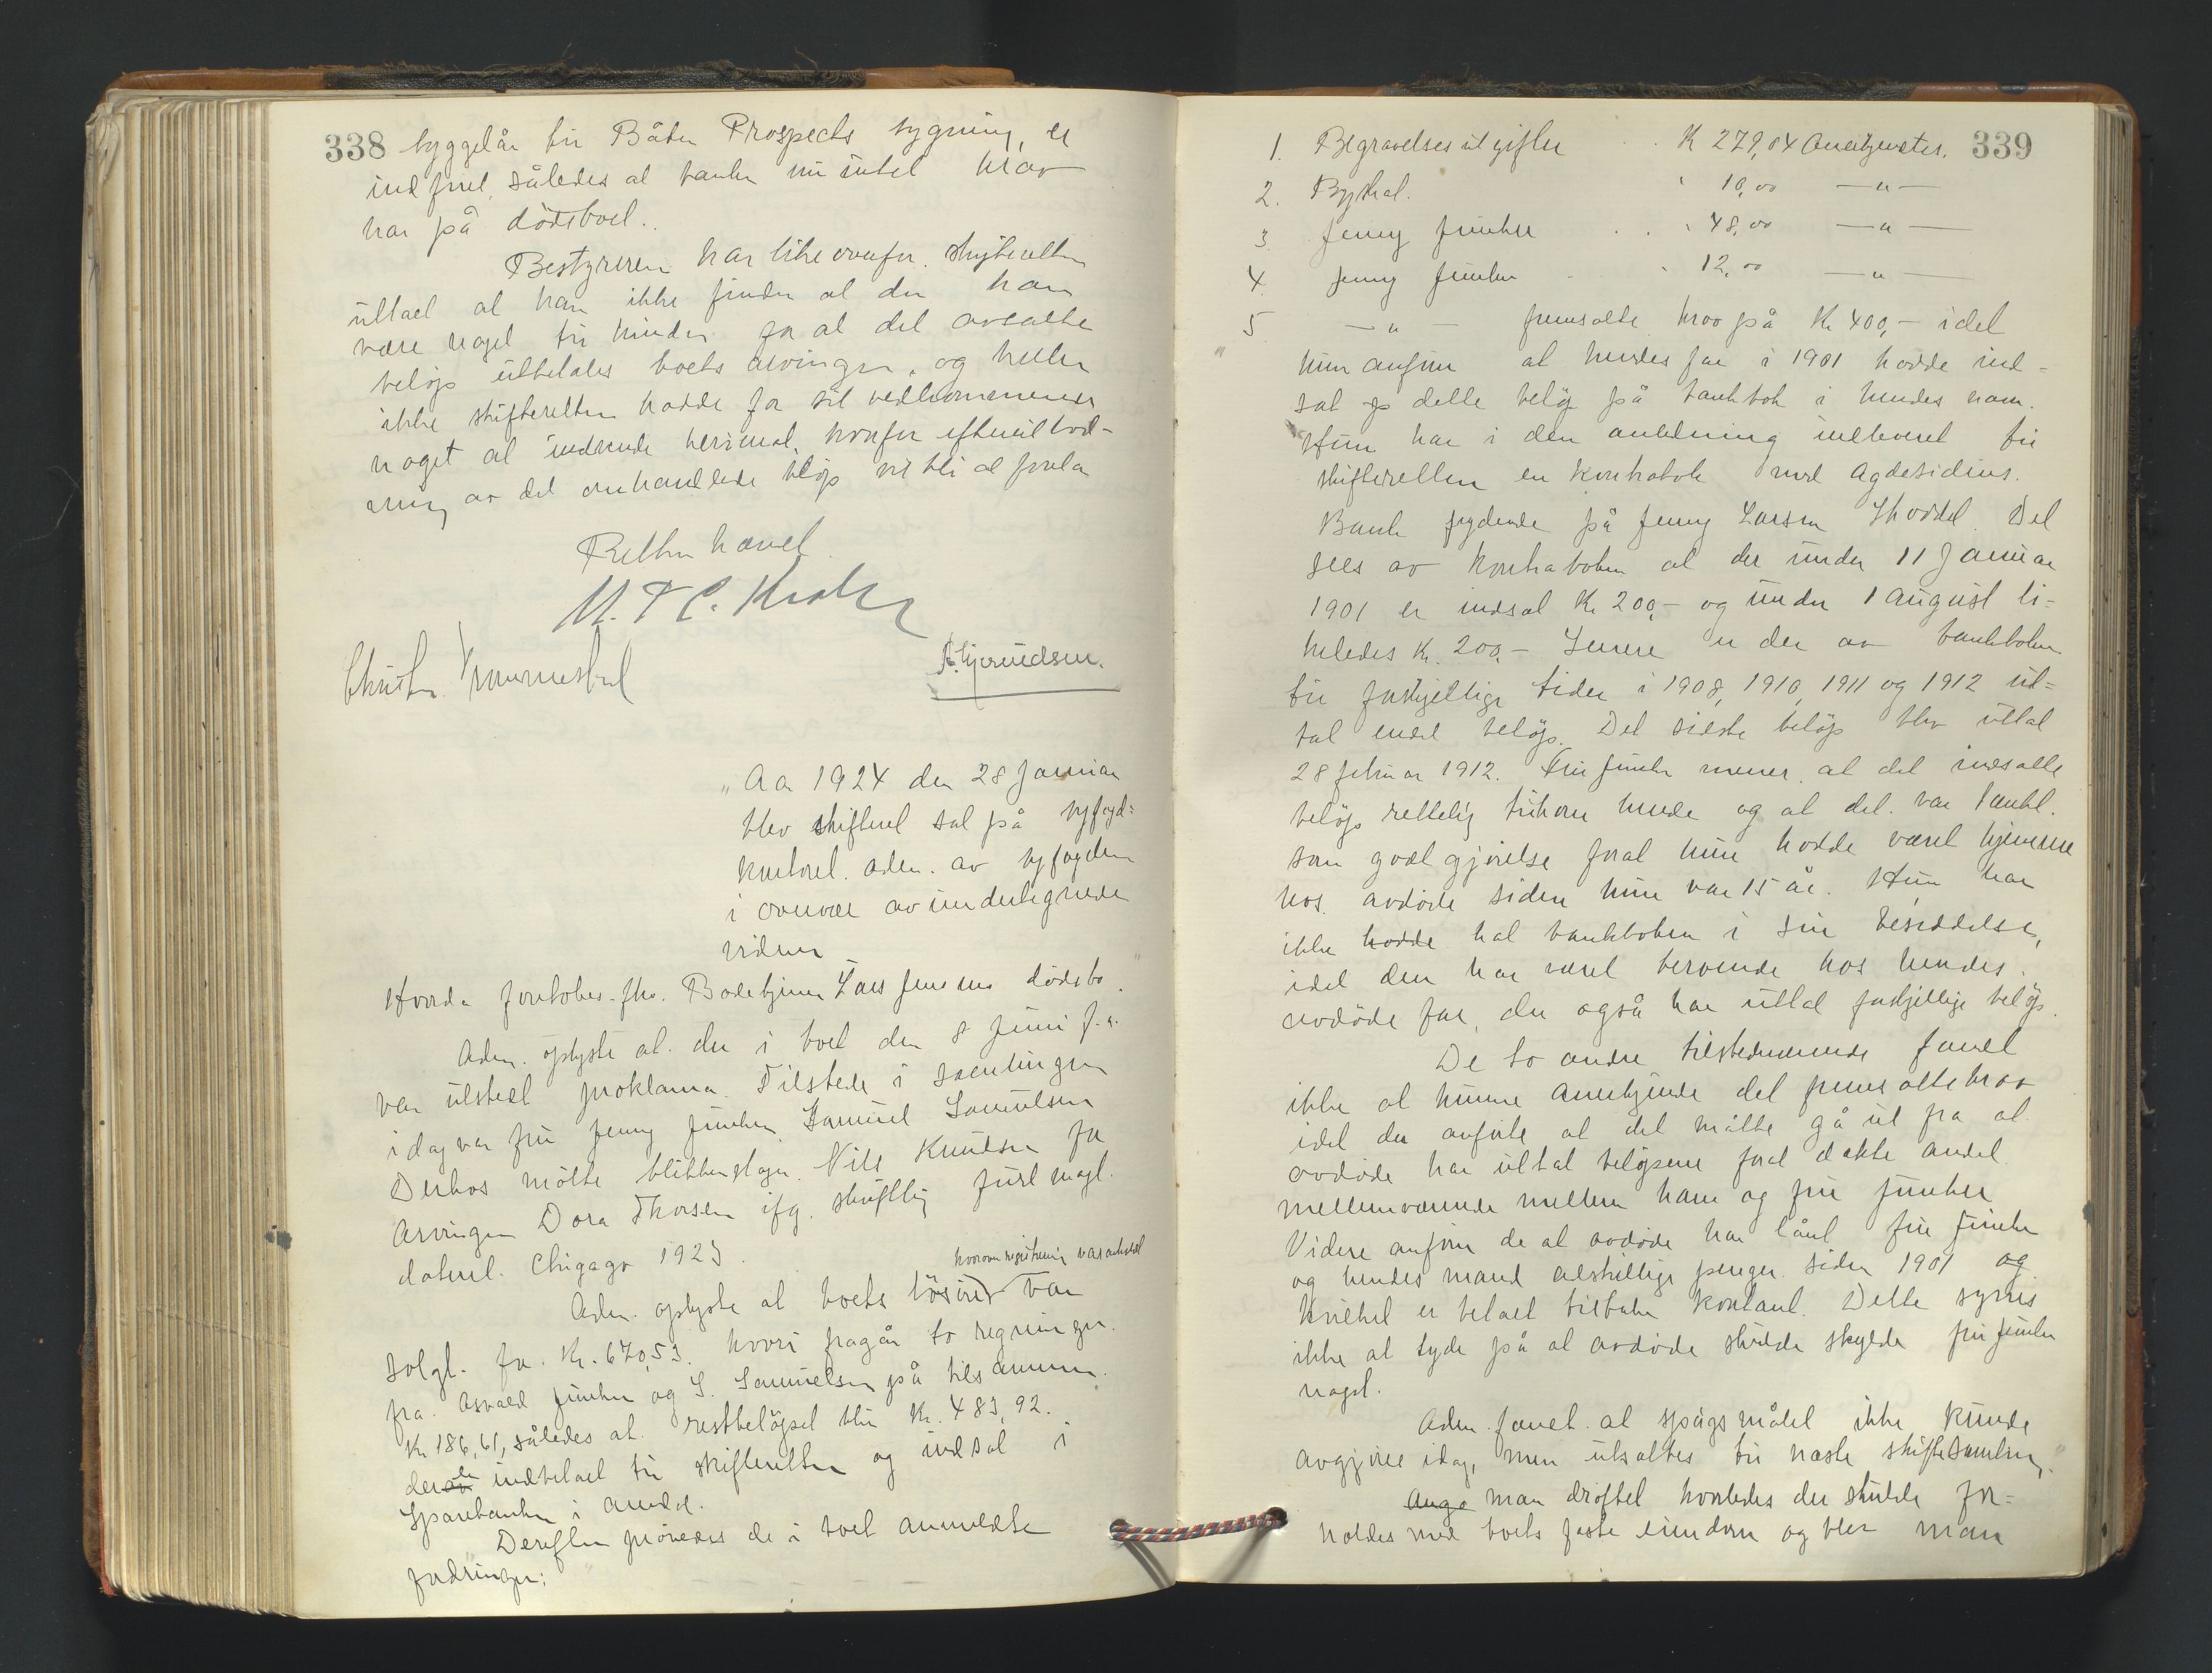 338
byggelån til Båten Prospects bygning, er
indfriet, således at banken nu intet krav
har på dödsboet.
Bestyreren har likeoverfor skifteretten
uttalt at han ikke finder at der kan
være noget til hinder for at det avsatte
belöp utbetales boets arvinger, og heller
ikke skifteretten hadde for sit vedkommende
noget at indvende herimot, hvorfor
av det omhandlede belöp vil bli at foreta
Retten hævet
"Aar 1924 den 28 Januar
blev skifteret sat på byfogd=
kontoret. adm. av byfogden
i overvær av undertegnede
vidner
Hvorda foretokes: fhv. Lars Jensens dödsbo."
Adm. oplyste at der i boet den 8 Juni f.a.
var utstedt proklama. Tilstede i samlingen
idag var fru Jenny Junker, Samuel Samuelsen
Derhos mötte blikkenslager Nils Knudsen for
arvingen Dora Thorsen ifg. skriftlig fuldmagt
dateret Chigago 1923.
hvorover registrering var avholdt
Adm. oplyste at boets lösöre var
solgt for Kr. 670,53. hvori fragår to regninger
fra Asvald Junker og S. Samuelsen på tilsammen
Kr 186,61, således at restbelöpet blir Kr. 483,92.
der er indbetalt til skifteretten og indsat i
Sparebanken i Arendal.
Derefter prövedes de i boet anmeldte
fordringer:
339
1. Begravelsesutgifter . . K 279,04 Anerkjendtes.
2. Bykas. " 10,00 —"—
3 Jenny Junker . . " 48,00 —"—
4. Jenny Junker . " 12,00 —"—
5 —"— fremsatte krav på Kr 400,- idet
hun anförer at hendes far i 1901 hadde ind=
sat op dette belöp på bankbok i hendes navn.
Hun har i den anledning indleveret til
skifteretten en kontrabok med Agdesidens
Bank lydende på Jenny Larsen Skoddel. Det
sees av kontraboken at der under 11 Januar
1901 er indsat Kr 200,- og under 1 August li=
keledes Kr. 200,- Senere er der av bankboken
til forskjellige tider i 1908, 1910, 1911 og 1912 ut=
tat endel belöp. Det sidste belöp blev uttat
28 februar 1912. Fru Junker mener at det indsatte
belöp rettelig tilkom hende og at det var tænkt
som godtgjörelse for at hun hadde været hjemme
hos avdöde siden hun var 15 år. Hun har
ikke hadde hat bankboken i sin besiddelse,
idet den har været beroende hos hendes
avdöde far, der også har uttat forskjellige belöp.
De to andre tilstedeværende fandt
ikke at kunne anerkjende det fremsatte krav
idet de anförte at det måtte gå ut fra at
avdöde har uttat belöpene for at dekke andet
mellemværende mellem ham og fru Junker
Videre anförer de at avdöde har lånt fru Junker
og hendes mand adskillige penger siden 1901 og
hvilket er betalt tilbake kontant. Dette synes
ikke at tyde på at avdöde skulde skylde fru Junker
noget.
Adm. fandt at spörgsmålet ikke kunde
avgjöres idag, men utsattes til næste skiftesamling.
Ang man dröftet hvorledes der skulde for=
holdes med boets faste eiendom og blev man